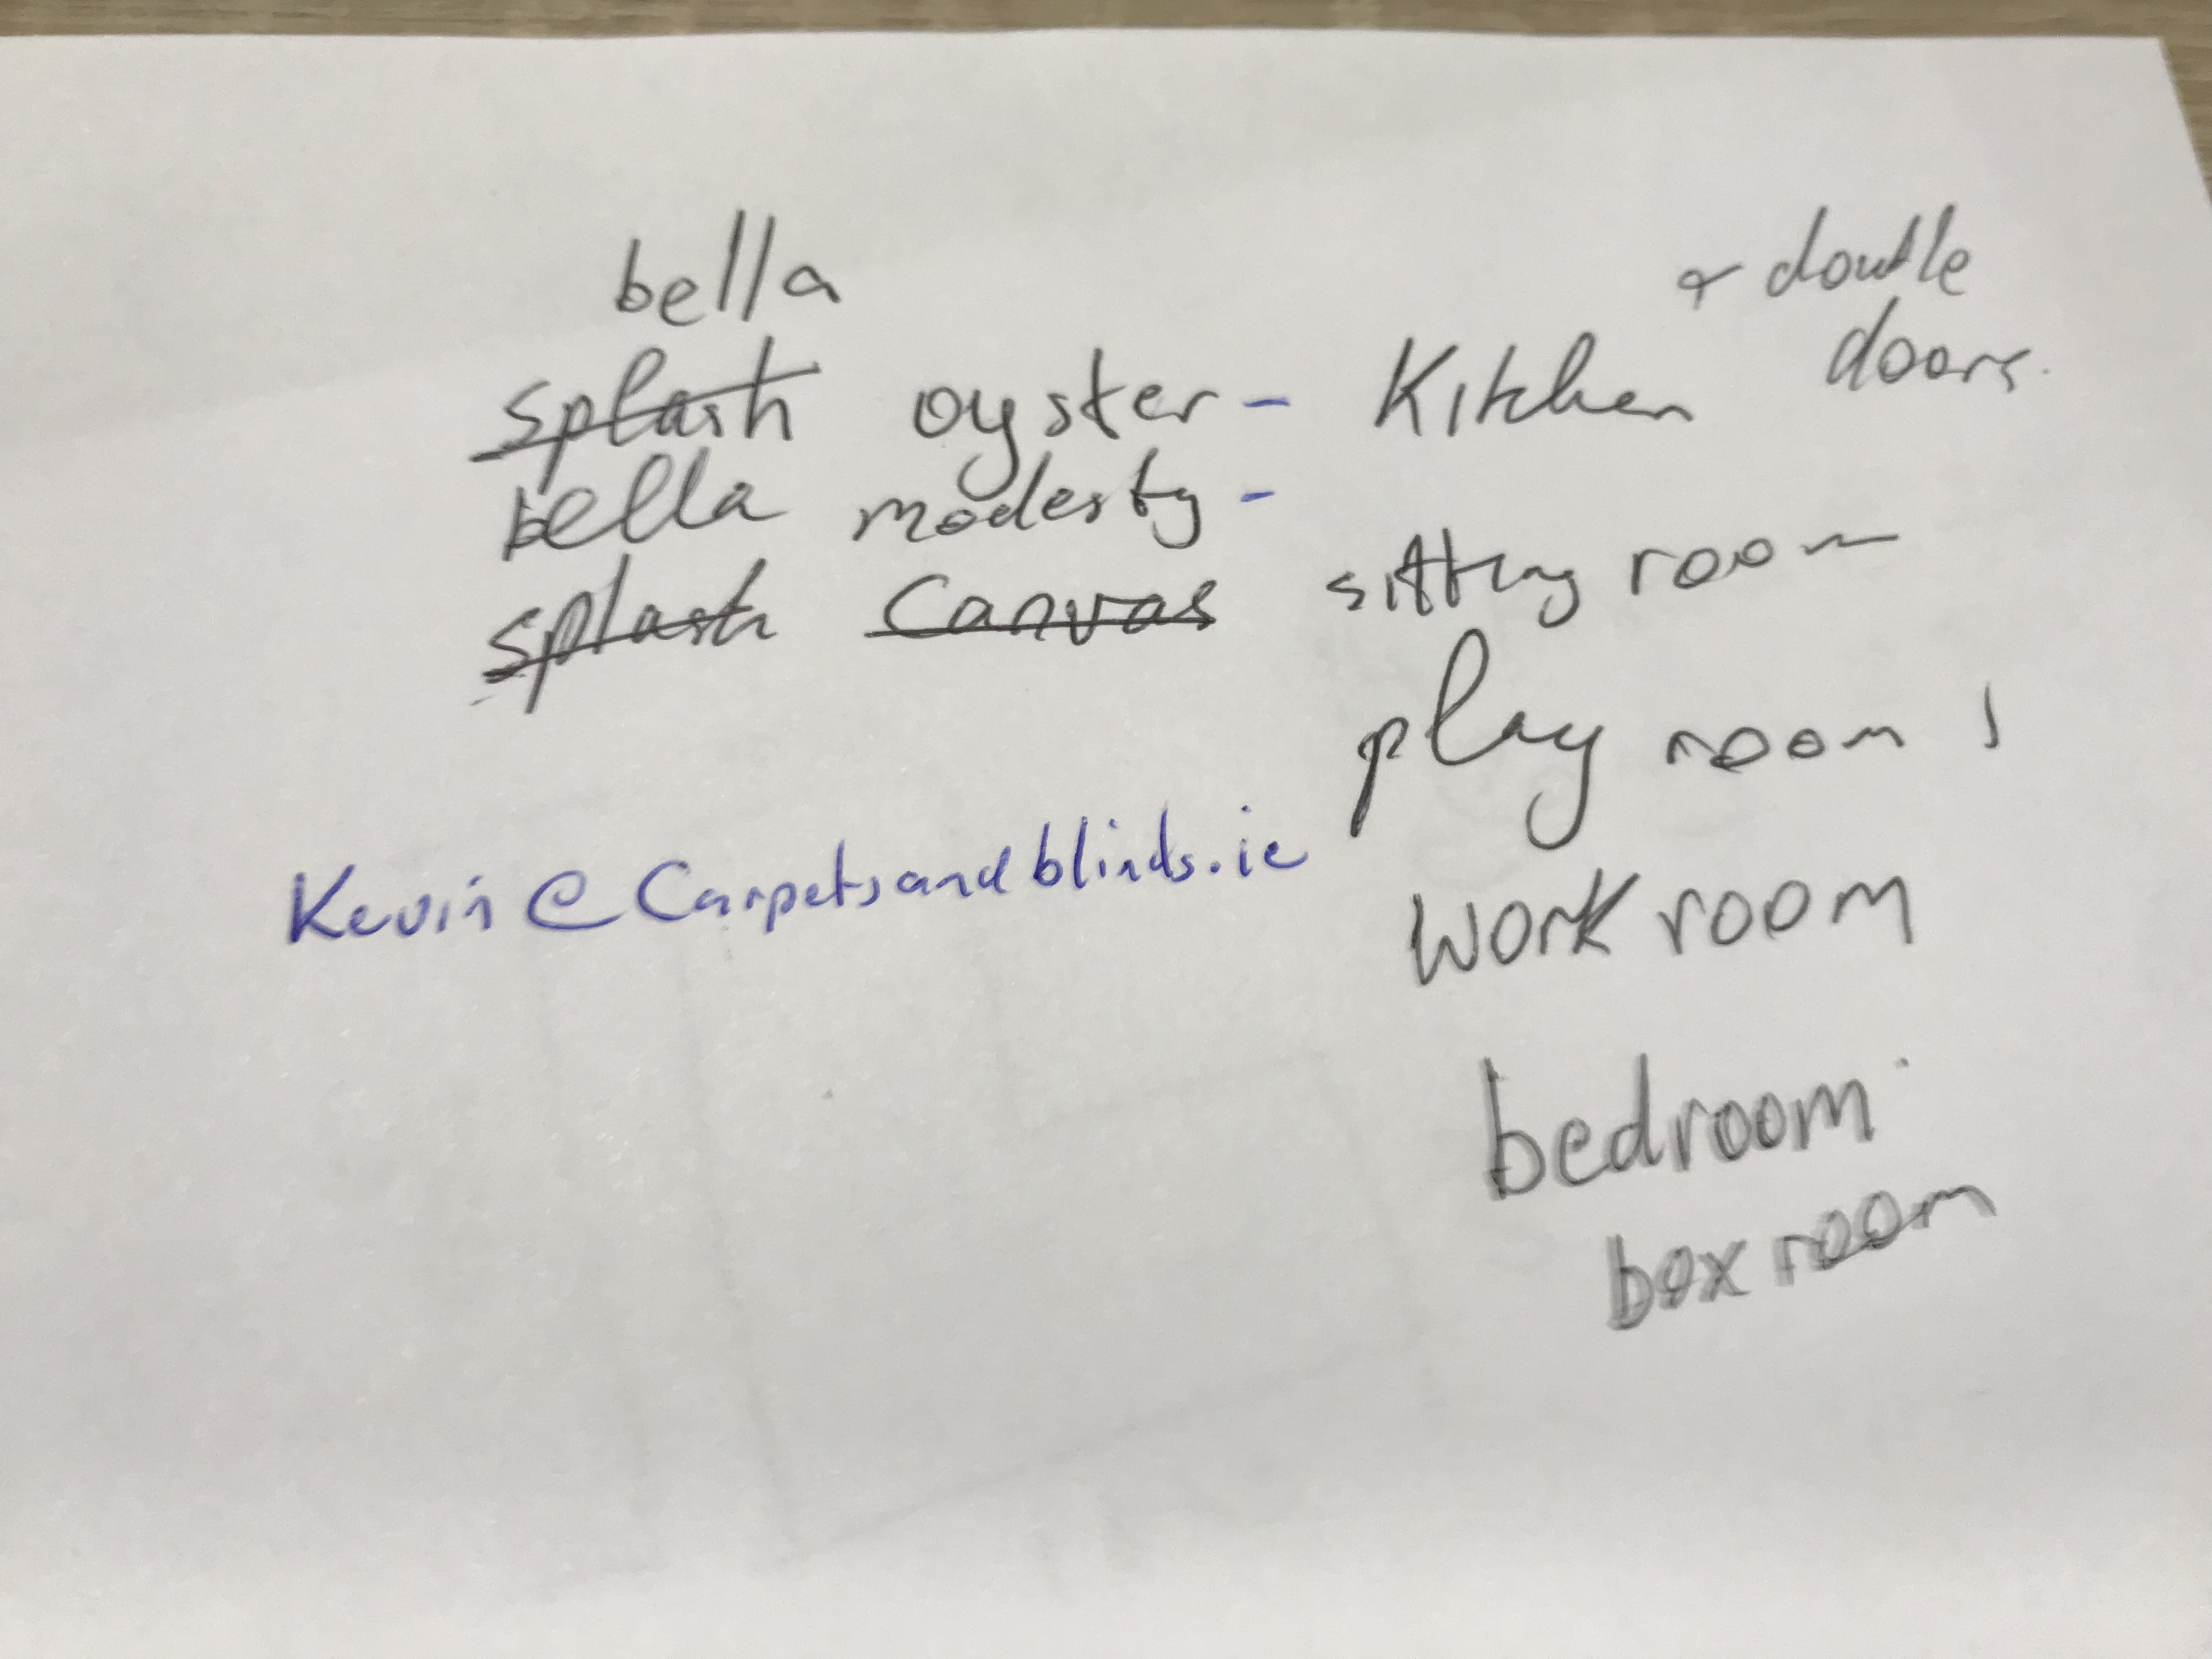 bella
+ double
doors.
splash oyster - Kitchen
bella modesty -
splash Canvas sitting room
play room 1
Kevin@Carpetsandblinds.ie
work room
bedroom
box room